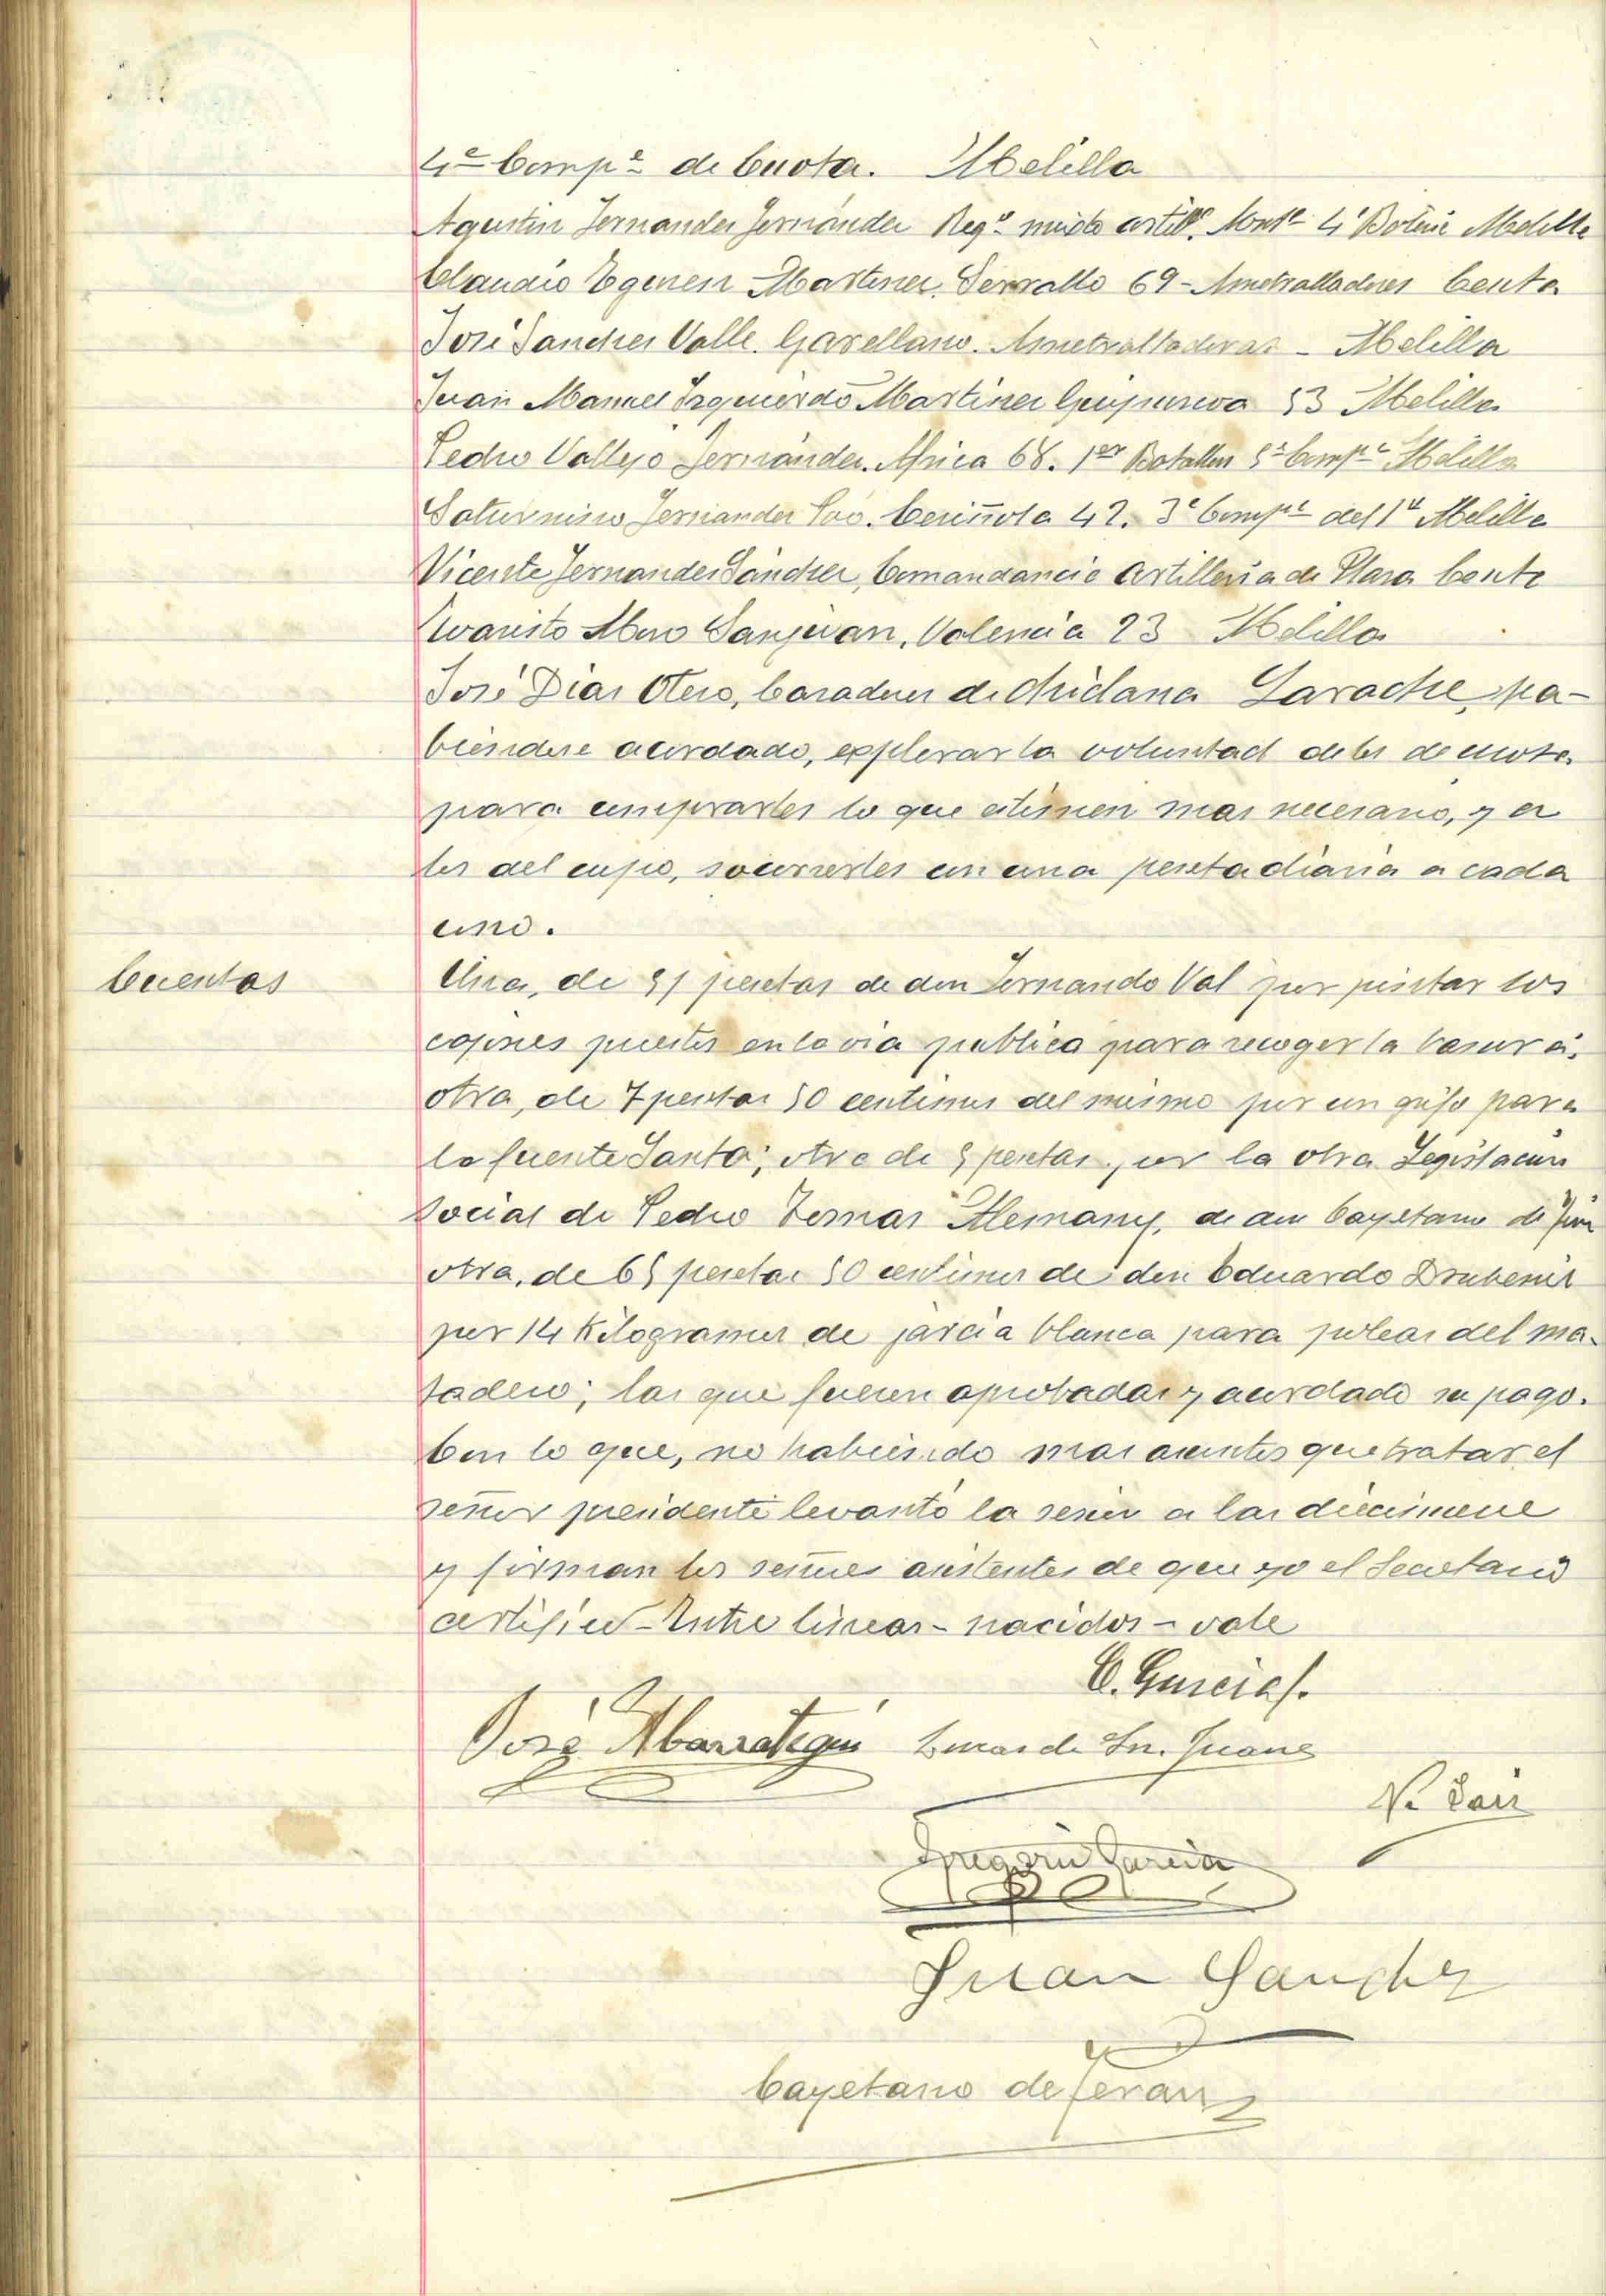 4ª Compª de Cuota. Melilla
Agustin Fernandez Fernández Regº mixto artillª Montª 4ª Bateria Melilla
Claudio Martinez. Serrallo 69 - Ametralladoras Ceuta
José Sanchez Valle. Garellano. Ametralladoras - Melilla
Juan Manuel Izquierdo Martinez Guipuzcoa 53 Melilla
Pedro Vallejo Fernández. Africa 68. 1er Batallon 5ª Compª Melilla
Saturnino Fernandez. Ceriñola 42. 3ª Compª del 1º Melilla
Vicente Fernandez Sánchez, Comandancia Artilleria de Plaza Ceuta
Evaristo Sanjuan, Valencia 23 Melilla
José Diaz Otero, Cazadores de Chiclana Larache, ha-
biendose acordado, explorar la voluntad de los de cuota
para comprarles lo que estimen mas necesario, y a
los del cupo, socorrerles con una peseta diaria a cada
uno.
Cuentas
Una, de 51 pesetas de don Fernando Val por pintar los
cajones puestos en la via publica para recoger la basura;
otra, de 7 pesetas 50 centimos del mismo por un grifo para
la fuente Santa; otra de 5 pesetas por la obra Legislacion
Social de Pedro Tomas Alemany, de don Cayetano de
otra, de 65 pesetas 50 centimos de don Eduardo
por 14 Kilogramos de jarcia blanca para poleas del ma-
tadero; las que fueron aprobadas y acordado su pago.
Con lo que, no habiendo mas asuntos que tratar el
señor presidente levantó la sesion a las diecinueve
y firman los señores asistentes de que yo el Secretario
certifico - Entre lineas - nacidos - vale
C. Garcia
José Abarrategui Tomas de Sn. Juane
N. Saiz
Gregorio Garcia
Juan Sanchez
Cayetano de Teran